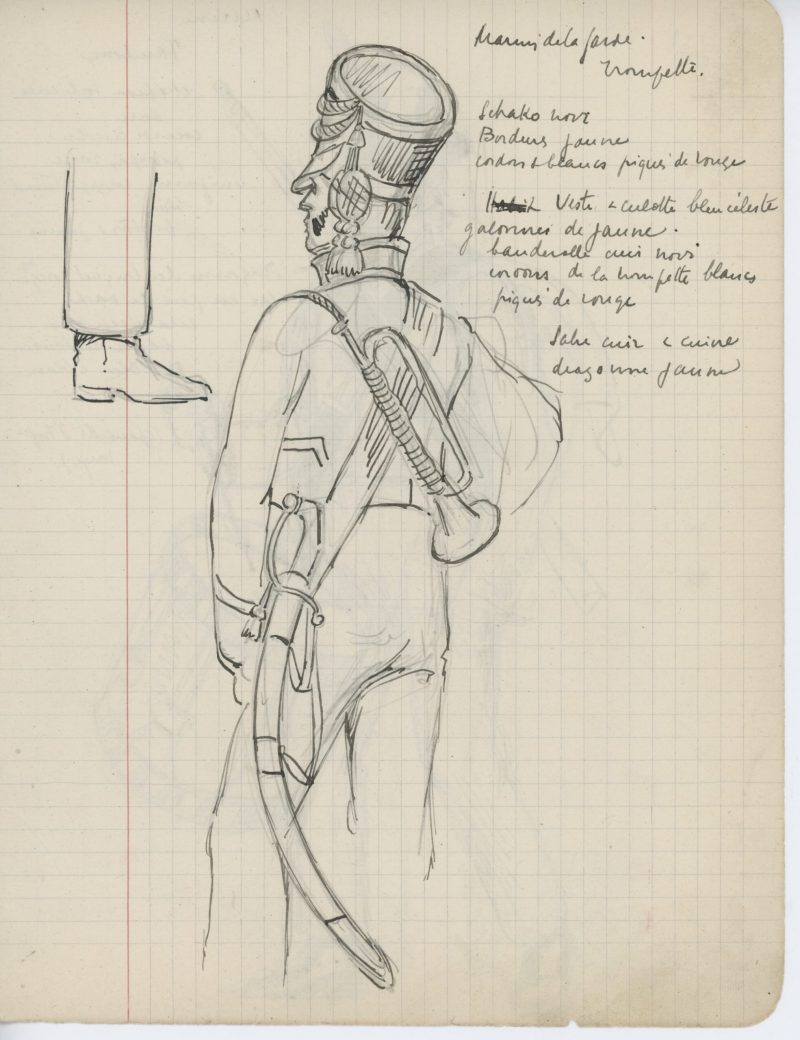 Marins de la garde.
Trompette.
Schako noir
Bordures jaune
cordons blancs piqués de rouge
Habit Veste & culotte bleu céleste
galonnées de jaune.
banderolle cuir noir
cordons de la trompette blancs
piqués de rouge
Sabre cuir & cuivre
dragonne jaune